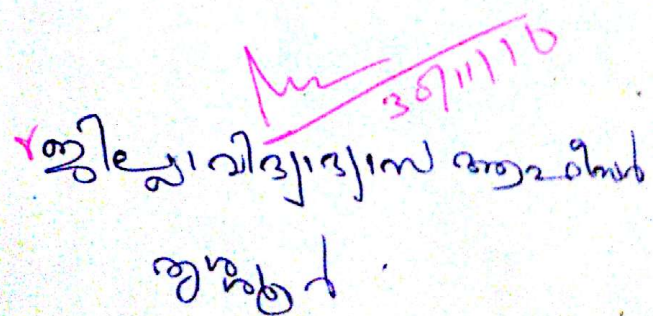 30/11/16
ജില്ലാ വിദ്യാഭ്യാസ ആഫീസർ
തൃശ്ശൂർ.